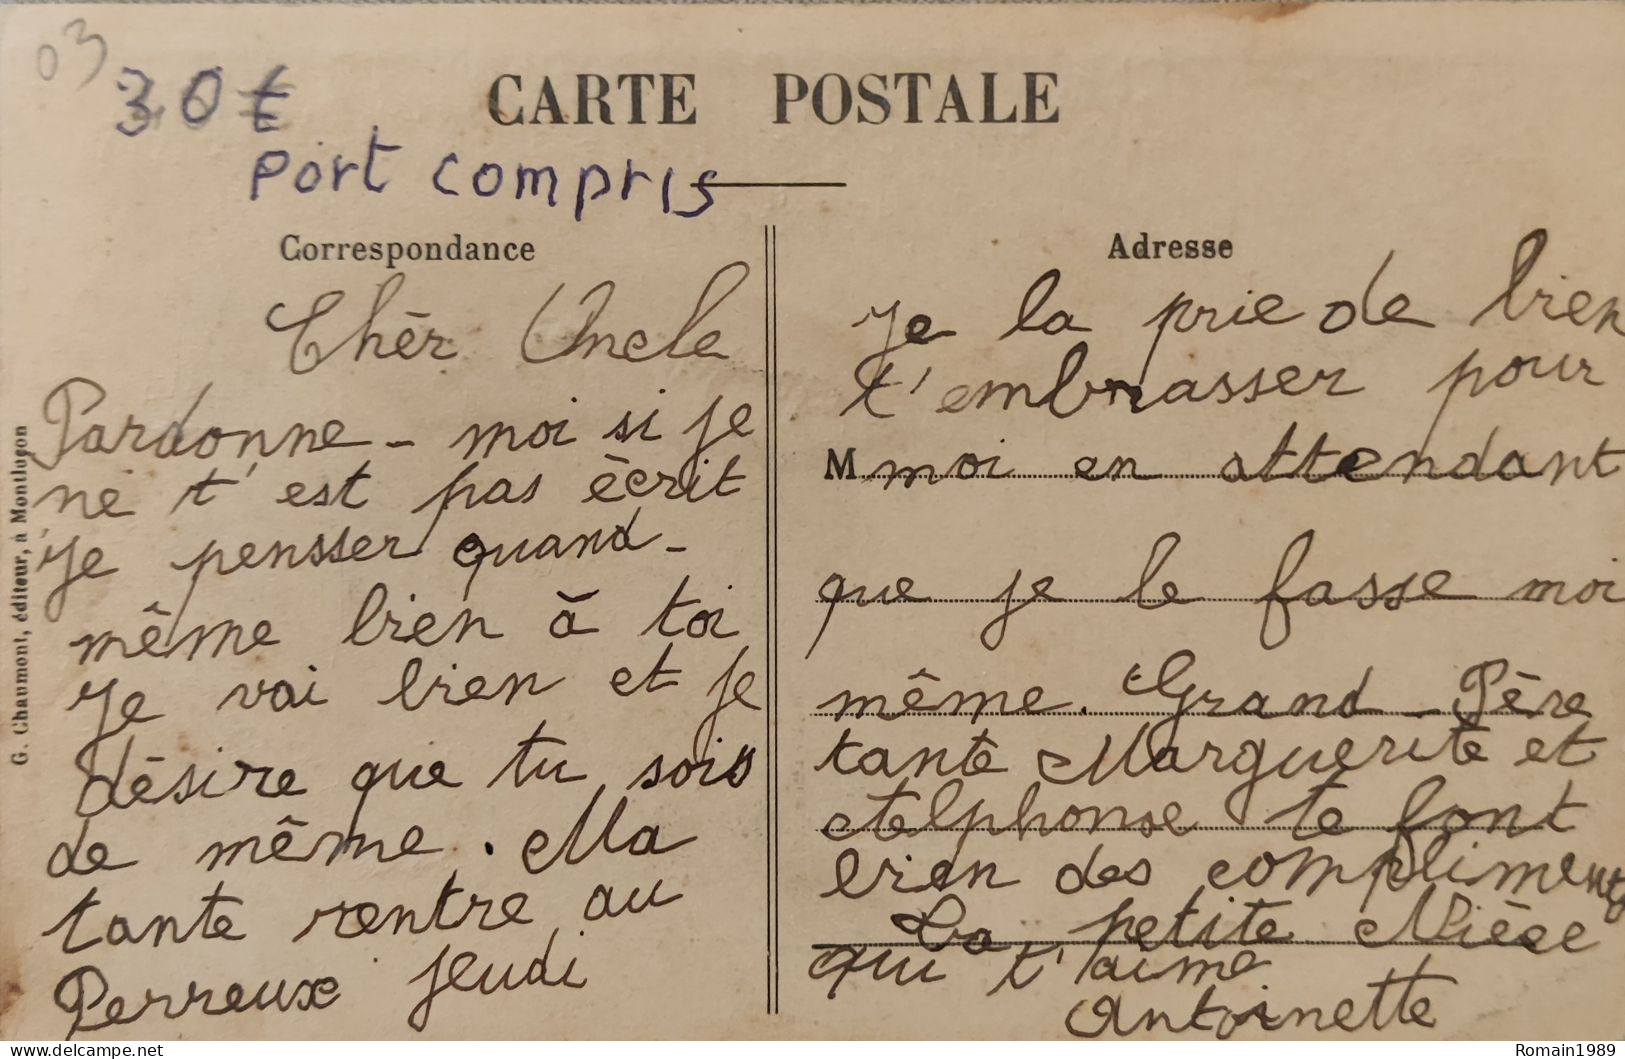 03
30 €
port compris
CARTE POSTALE
Correspondance
Chèr Oncle
Pardonne-moi si je
ne t'est pas ècrit
je pensser quand-
même bien à toi
Je vai bien et je
désire que tu sois
de même. Ma
tante rentre au
Perreux jeudi
G. Chaumont, éditeur, à Montluçon
Adresse
je la prie de bien
t'embrasser pour
M moi en attendant
que je le fasse moi
même. Grand-Père
tante Marguerite et
Alphonse te font
bien des compliments
La petite Nièce
qui t'aime
Antoinette
Romain1989